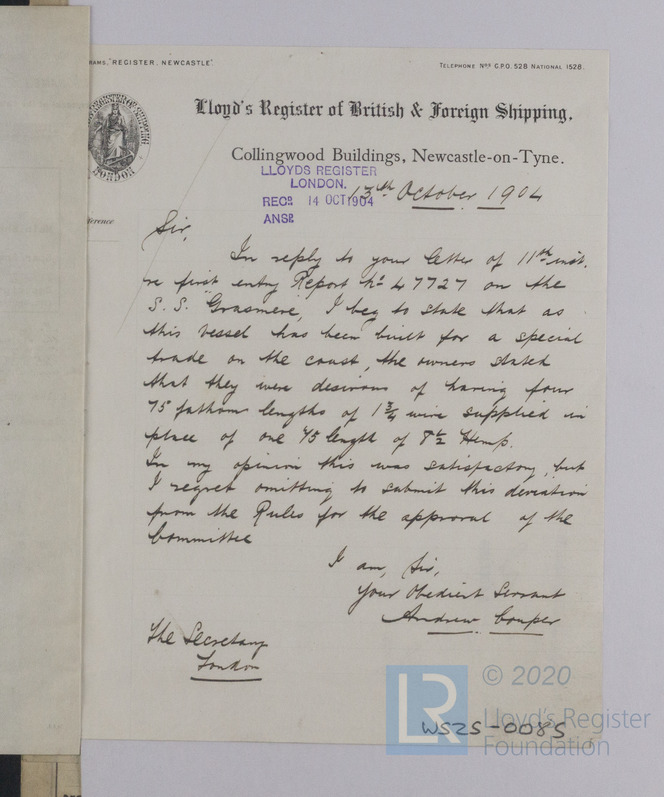 RAMS, "REGISTER, NEWCASTLE".
TELEPHONE Nos G.P.O. 528 NATIONAL 1528.
Lloyd's Register of British & Foreign Shipping.
Collingwood Buildings, Newcastle-on-Tyne.
LLOYDS REGISTER
LONDON.
RECD. 14 OCT 1904
ANSD.
13th October 1904
erence
Sir,
In reply to your letter of 11th inst.
re first entry Report No 47727 on the
S.S. "Grasmere", I beg to state that as
this vessel has been built for a special
trade on the coast, the owners stated
that they were desirous of having four
75 fathom lengths of 1 3/4 wire supplied in
place of one 75 length of 8 1/2 Hemp.
In my opinion this was satisfactory, but
I regret omitting to submit this deviation
from the Rules for the approval of the
Committee
I am, Sir,
Your Obedient Servant
Andrew Couper
The Secretary
London
© 2020
LR
Lloyd's Register
Foundation
WS25-0085